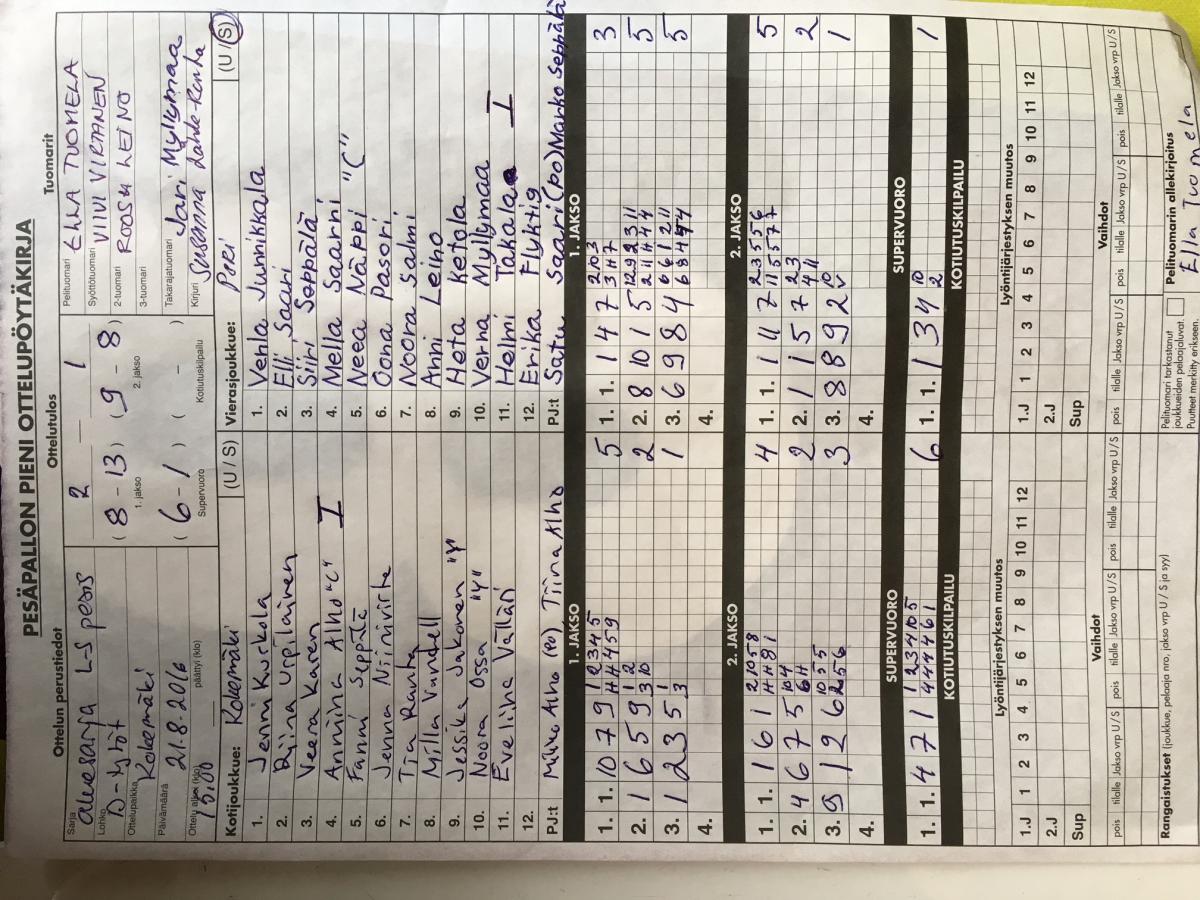 PESÄPALLON PIENI OTTELUPÖYTÄKIRJA
Ottelun perustiedot
Ottelutulos
Tuomarit
Sarja
aluesarja L-S pesis
Lohko
D-tytöt
Ottelupaikka
Kokemäki
Päivämäärä
21.8.2016
Ottelu alkoi (klo)
päättyi (klo)
15.00
2 1
(8 - 13) (9 - 8)
1. jakso 2. jakso
(6 - 1) ( - )
Supervuoro Kotiutuskilpailu
Pelituomari ELLA TUOMELA
Syöttötuomari VIIVI VIRTANEN
2-tuomari ROOSA LEINO
3-tuomari
Takarajatuomari Jari Myllymaa
Kirjuri Susanna Lahde-Ranha
Kotijoukkue: Kokemäki (U / S)
1. Jenni Kurkola
2. Riina Urpilainen
3. Veera Karen
4. Anniina Alho "C" I
5. Fanni Seppä
6. Jenna Niinivirta
7. Tia Ranta
8. Milla Vandell
9. Jessika Jakonen "Y"
10. Noora Ossa "Y"
11. Eveliina Vallari
12.
PJ:t Mikko Alho (PO) Tiina Alho
Vierasjoukkue: Pori (U / S)
1. Venla Junnikkala
2. Elli Saari
3. Siiri Seppälä
4. Mella Saarni
5. Neea Näppi "C"
6. Oona Pasori
7. Noora Salmi
8. Anni Leino
9. Heta Ketola
10. Verna Myllymaa
11. Helmi Takala I
12. Erika Flyktig
PJ:t Satu Saari (PO) Marko Seppälä
1. JAKSO
1. 1. 10 7 9 1 2 3 4 5 5
2. 1 6 5 9 2
3. 1 2 3 5 1
4.
1. JAKSO
1. 1. 1 4 7 3
2. 8 10 1 5 5
3. 6 9 8 4 5
4.
2. JAKSO
1. 1. 1 6 1 4
2. 4 6 7 5 2
3. 9 1 2 6 3
4.
2. JAKSO
1. 1. 1 11 7 5
2. 1 1 5 7 2
3. 8 8 9 2 1
4.
SUPERVUORO
1. 1. 4 7 1 6
SUPERVUORO
1. 1. 1 3 4 1
KOTIUTUSKILPAILU
KOTIUTUSKILPAILU
Lyöntijärjestyksen muutos
1.J 1 2 3 4 5 6 7 8 9 10 11 12
2.J
Sup
Lyöntijärjestyksen muutos
1.J 1 2 3 4 5 6 7 8 9 10 11 12
2.J
Sup
Vaihdot
pois tilalle Jakso vrp U / S pois tilalle Jakso vrp U / S pois tilalle Jakso vrp U / S
Vaihdot
pois tilalle Jakso vrp U / S pois tilalle Jakso vrp U / S pois tilalle Jakso vrp U / S
Rangaistukset (joukkue, pelaaja nro, jakso vrp U / S ja syy)
Pelituomari tarkastanut
joukkueiden pelaajaluvat.
Puutteet merkitty erikseen.
Pelituomarin allekirjoitus
Ella Tuomela